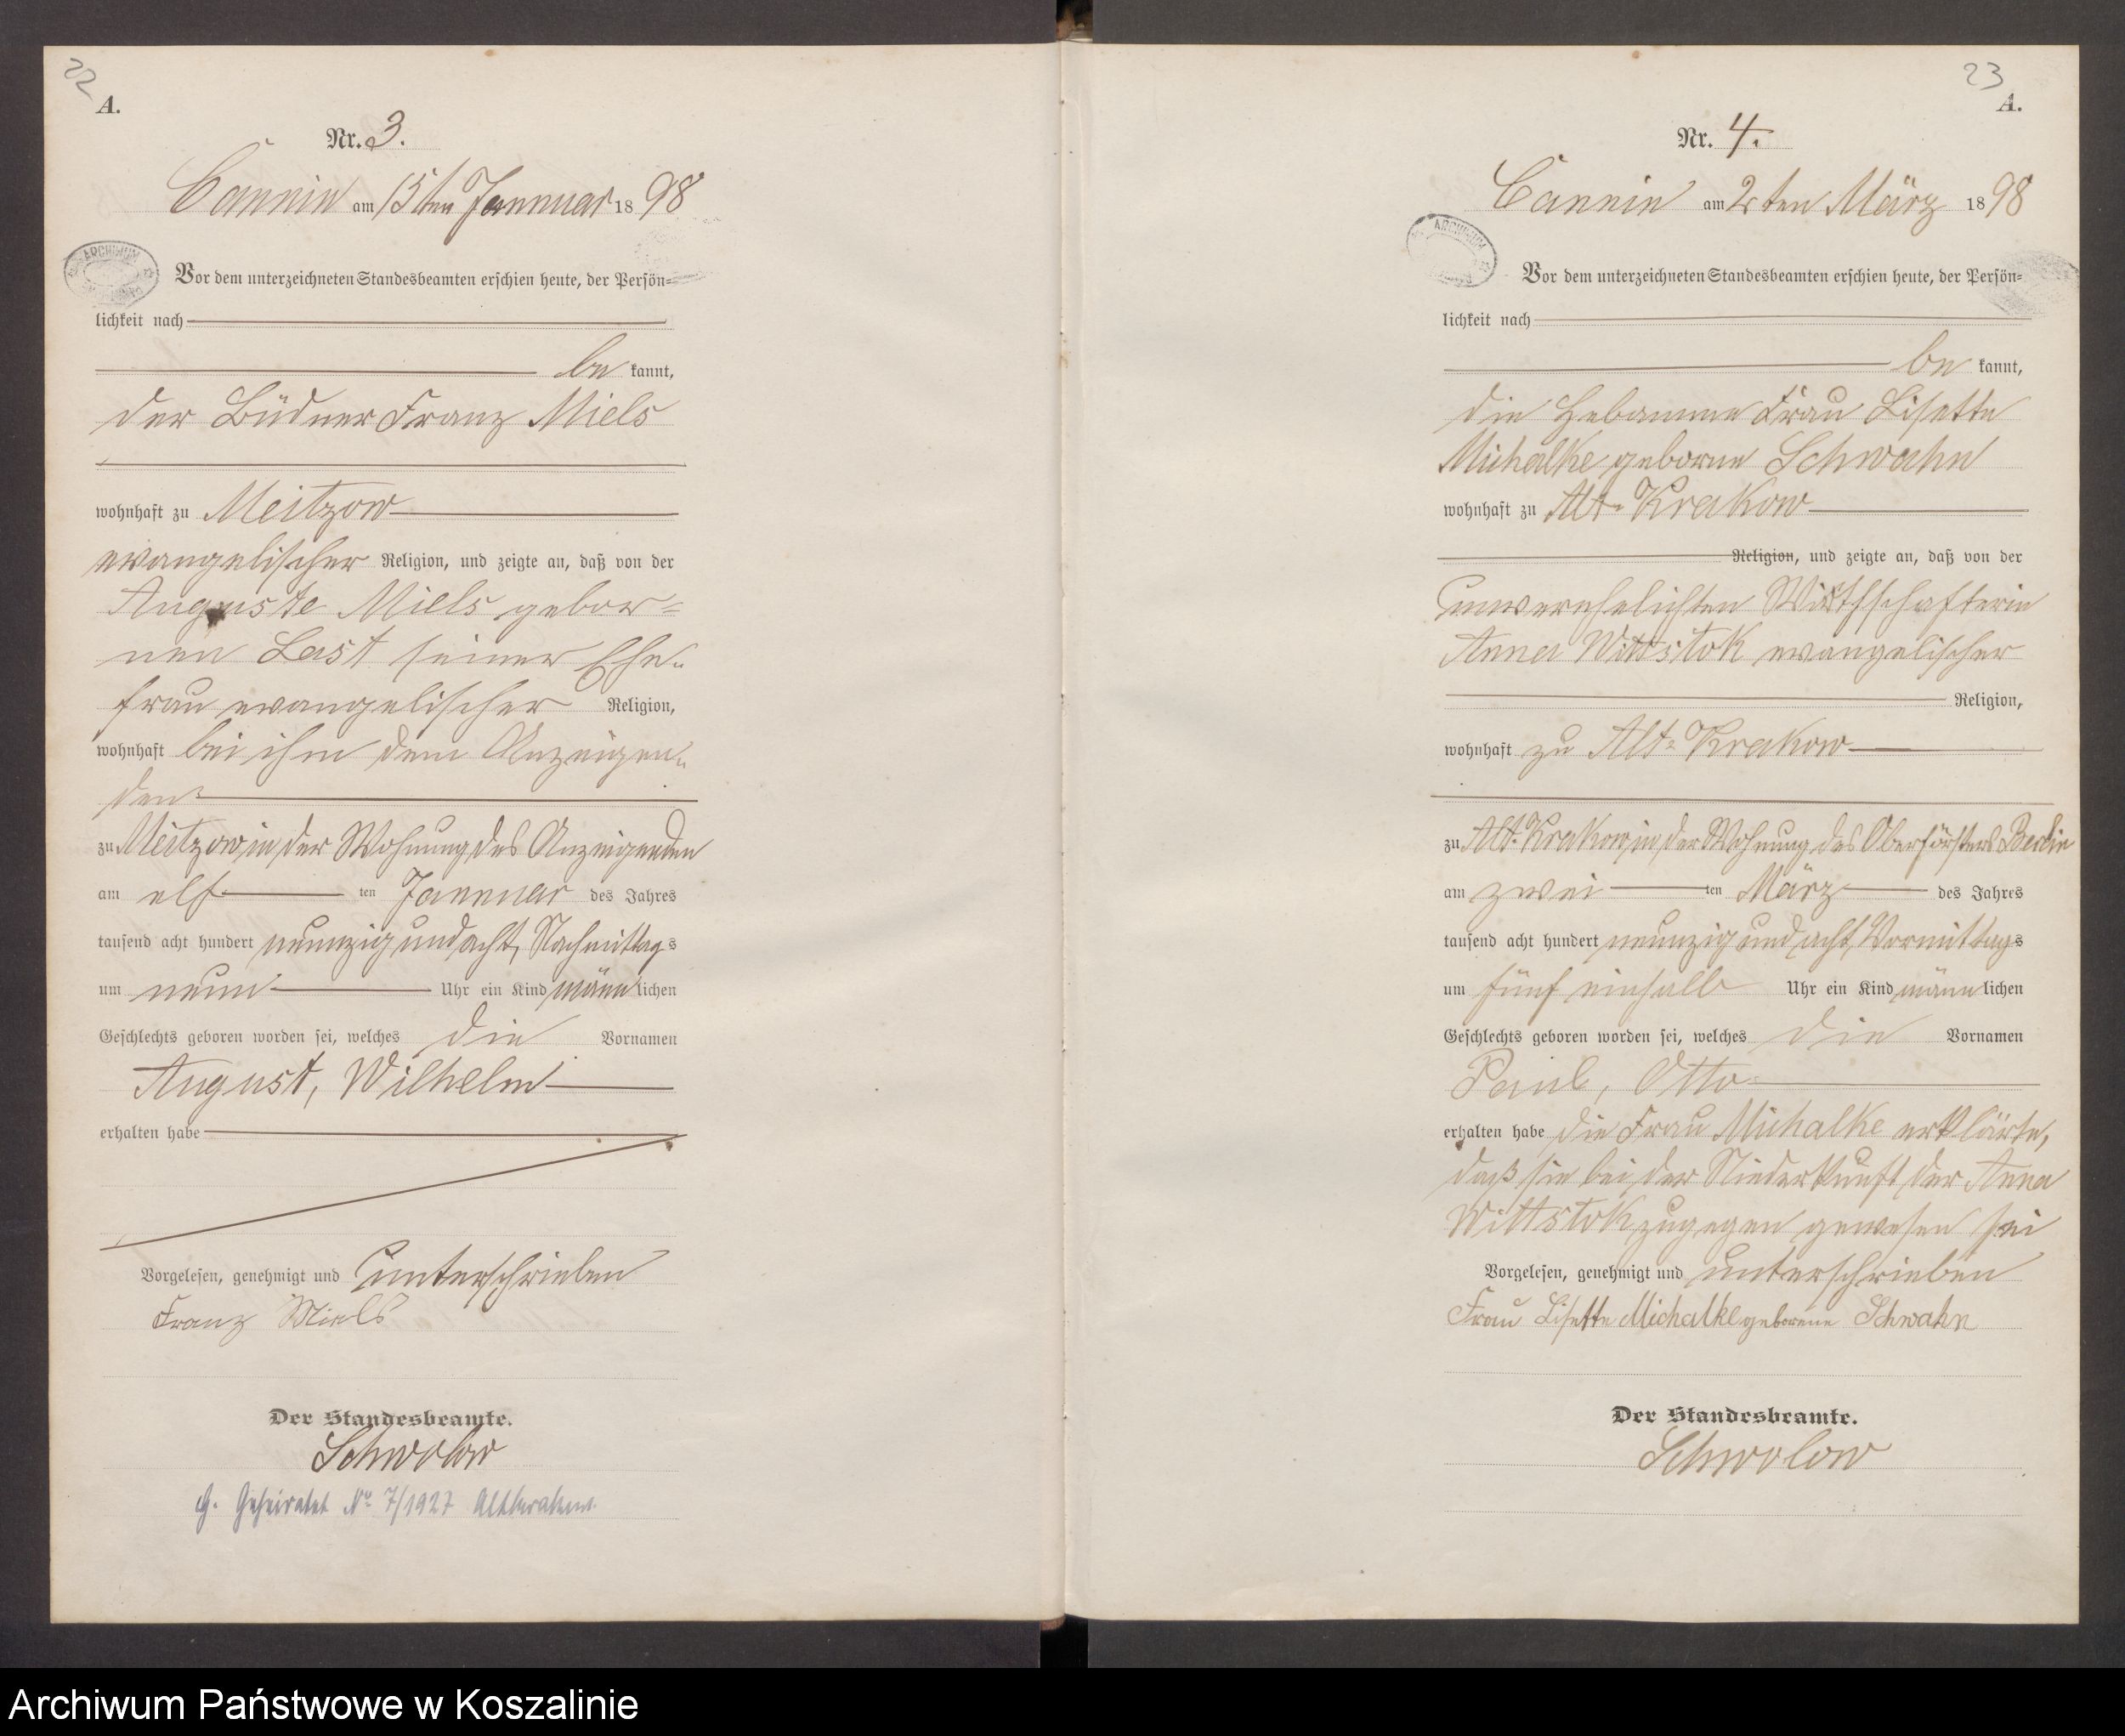 22
A.
Nr. 3.
Cannin am 15ten Jannuar 1898
ARCHIWUM
Vor dem unterzeichneten Standesbeamten erschien heute, der Persön=
lichkeit nach
be kannt,
der Büdner Franz Miels
wohnhaft zu Meitzow
evangelischer Religion, und zeigte an, daß von der
Auguste Miels gebor=
nen Last seiner Ehe=
frau evangelischer Religion,
wohnhaft bei ihm dem Anzeigen=
den
zu Meitzow in der Wohnung des Anzeigenden
am elf ten Jannuar des Jahres
tausend acht hundert neunzig und acht, Nachmittags
um neun Uhr ein Kind männlichen
Geschlechts geboren worden sei, welches die Vornamen
August, Wilhelm
erhalten habe
Vorgelesen, genehmigt und unterschrieben
Franz Miels
Der Standesbeamte.
Schwolow
G. Geheiratet No 7/1927 Altkrakow.
23
A.
Nr. 4.
Cannin am 2ten März 1898
ARCHIWUM
Vor dem unterzeichneten Standesbeamten erschien heute, der Persön=
lichkeit nach
be kannt,
die Hebamme Frau Lisette
Michalke geborne Schwahn
wohnhaft zu Alt=Krakow
Religion, und zeigte an, daß von der
unverehelichten Wirthschafterin
Anna Wittstok evangelischer
Religion,
wohnhaft zu Alt=Krakow
zu Alt=Krakow, in der Wohnung des Oberförsters Berlin
am zwei ten März des Jahres
tausend acht hundert neunzig und acht, Vormittags
um fünf einhalb Uhr ein Kind männlichen
Geschlechts geboren worden sei, welches die Vornamen
Paul, Otto
erhalten habe die Frau Michalke erklärte,
daß sie bei der Niederkunft der Anna
Wittstok zugegen gewesen sei
Vorgelesen, genehmigt und unterschrieben
Frau Lisette Michalke geborene Schwahn
Der Standesbeamte.
Schwolow
Archiwum Państwowe w Koszalinie